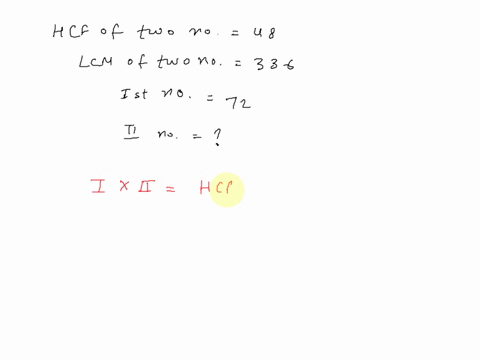 HCF of two no. = 48
LCM of two no. = 336
Ist no. = 72
II no. = ?
I × II = HCF